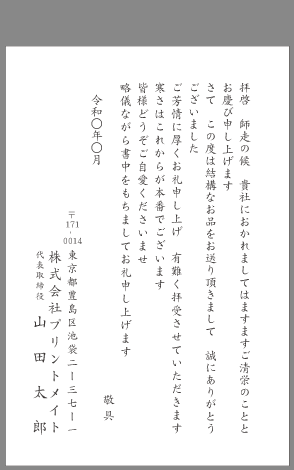 拝啓　師走の候　貴社におかれましてはますますご清栄のことと
お慶び申し上げます
さて　この度は結構なお品をお送り頂きまして　誠にありがとう
ございました
ご芳情に厚くお礼申し上げ　有難く拝受させていただきます
寒さはこれからが本番でございます
皆様どうぞご自愛くださいませ
略儀ながら書中をもちましてお礼申し上げます
敬具
令和〇年〇月
〒171-0014
東京都豊島区池袋二ー三七ー一
株式会社プリントメイト
代表取締役　山田太郎